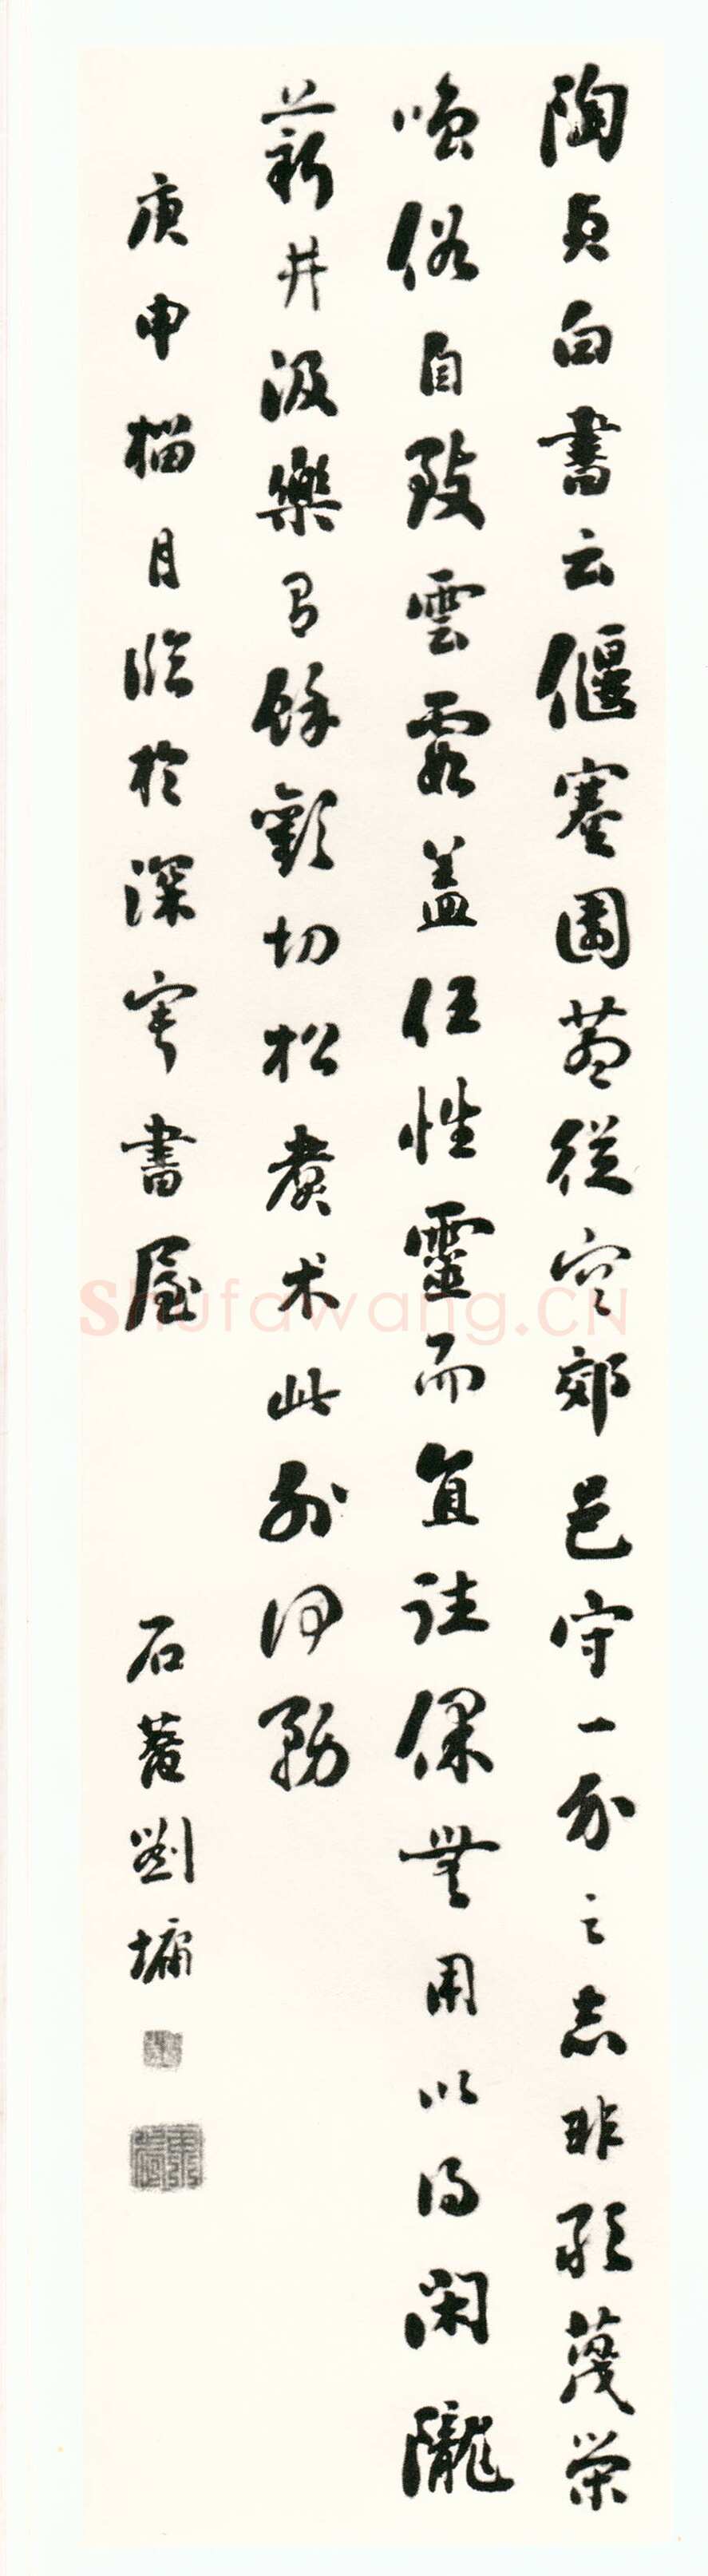 陶貞白書云偃蹇園巷從容郊邑守一介之志非敢蔑榮
嗤俗自致雲霞蓋任性靈而直往保無用以得閑隴
薪井汲樂有餘歡切松煮术此外何務
庚申榴月臨於深寧書屋 石菴劉墉
shufawang.CN